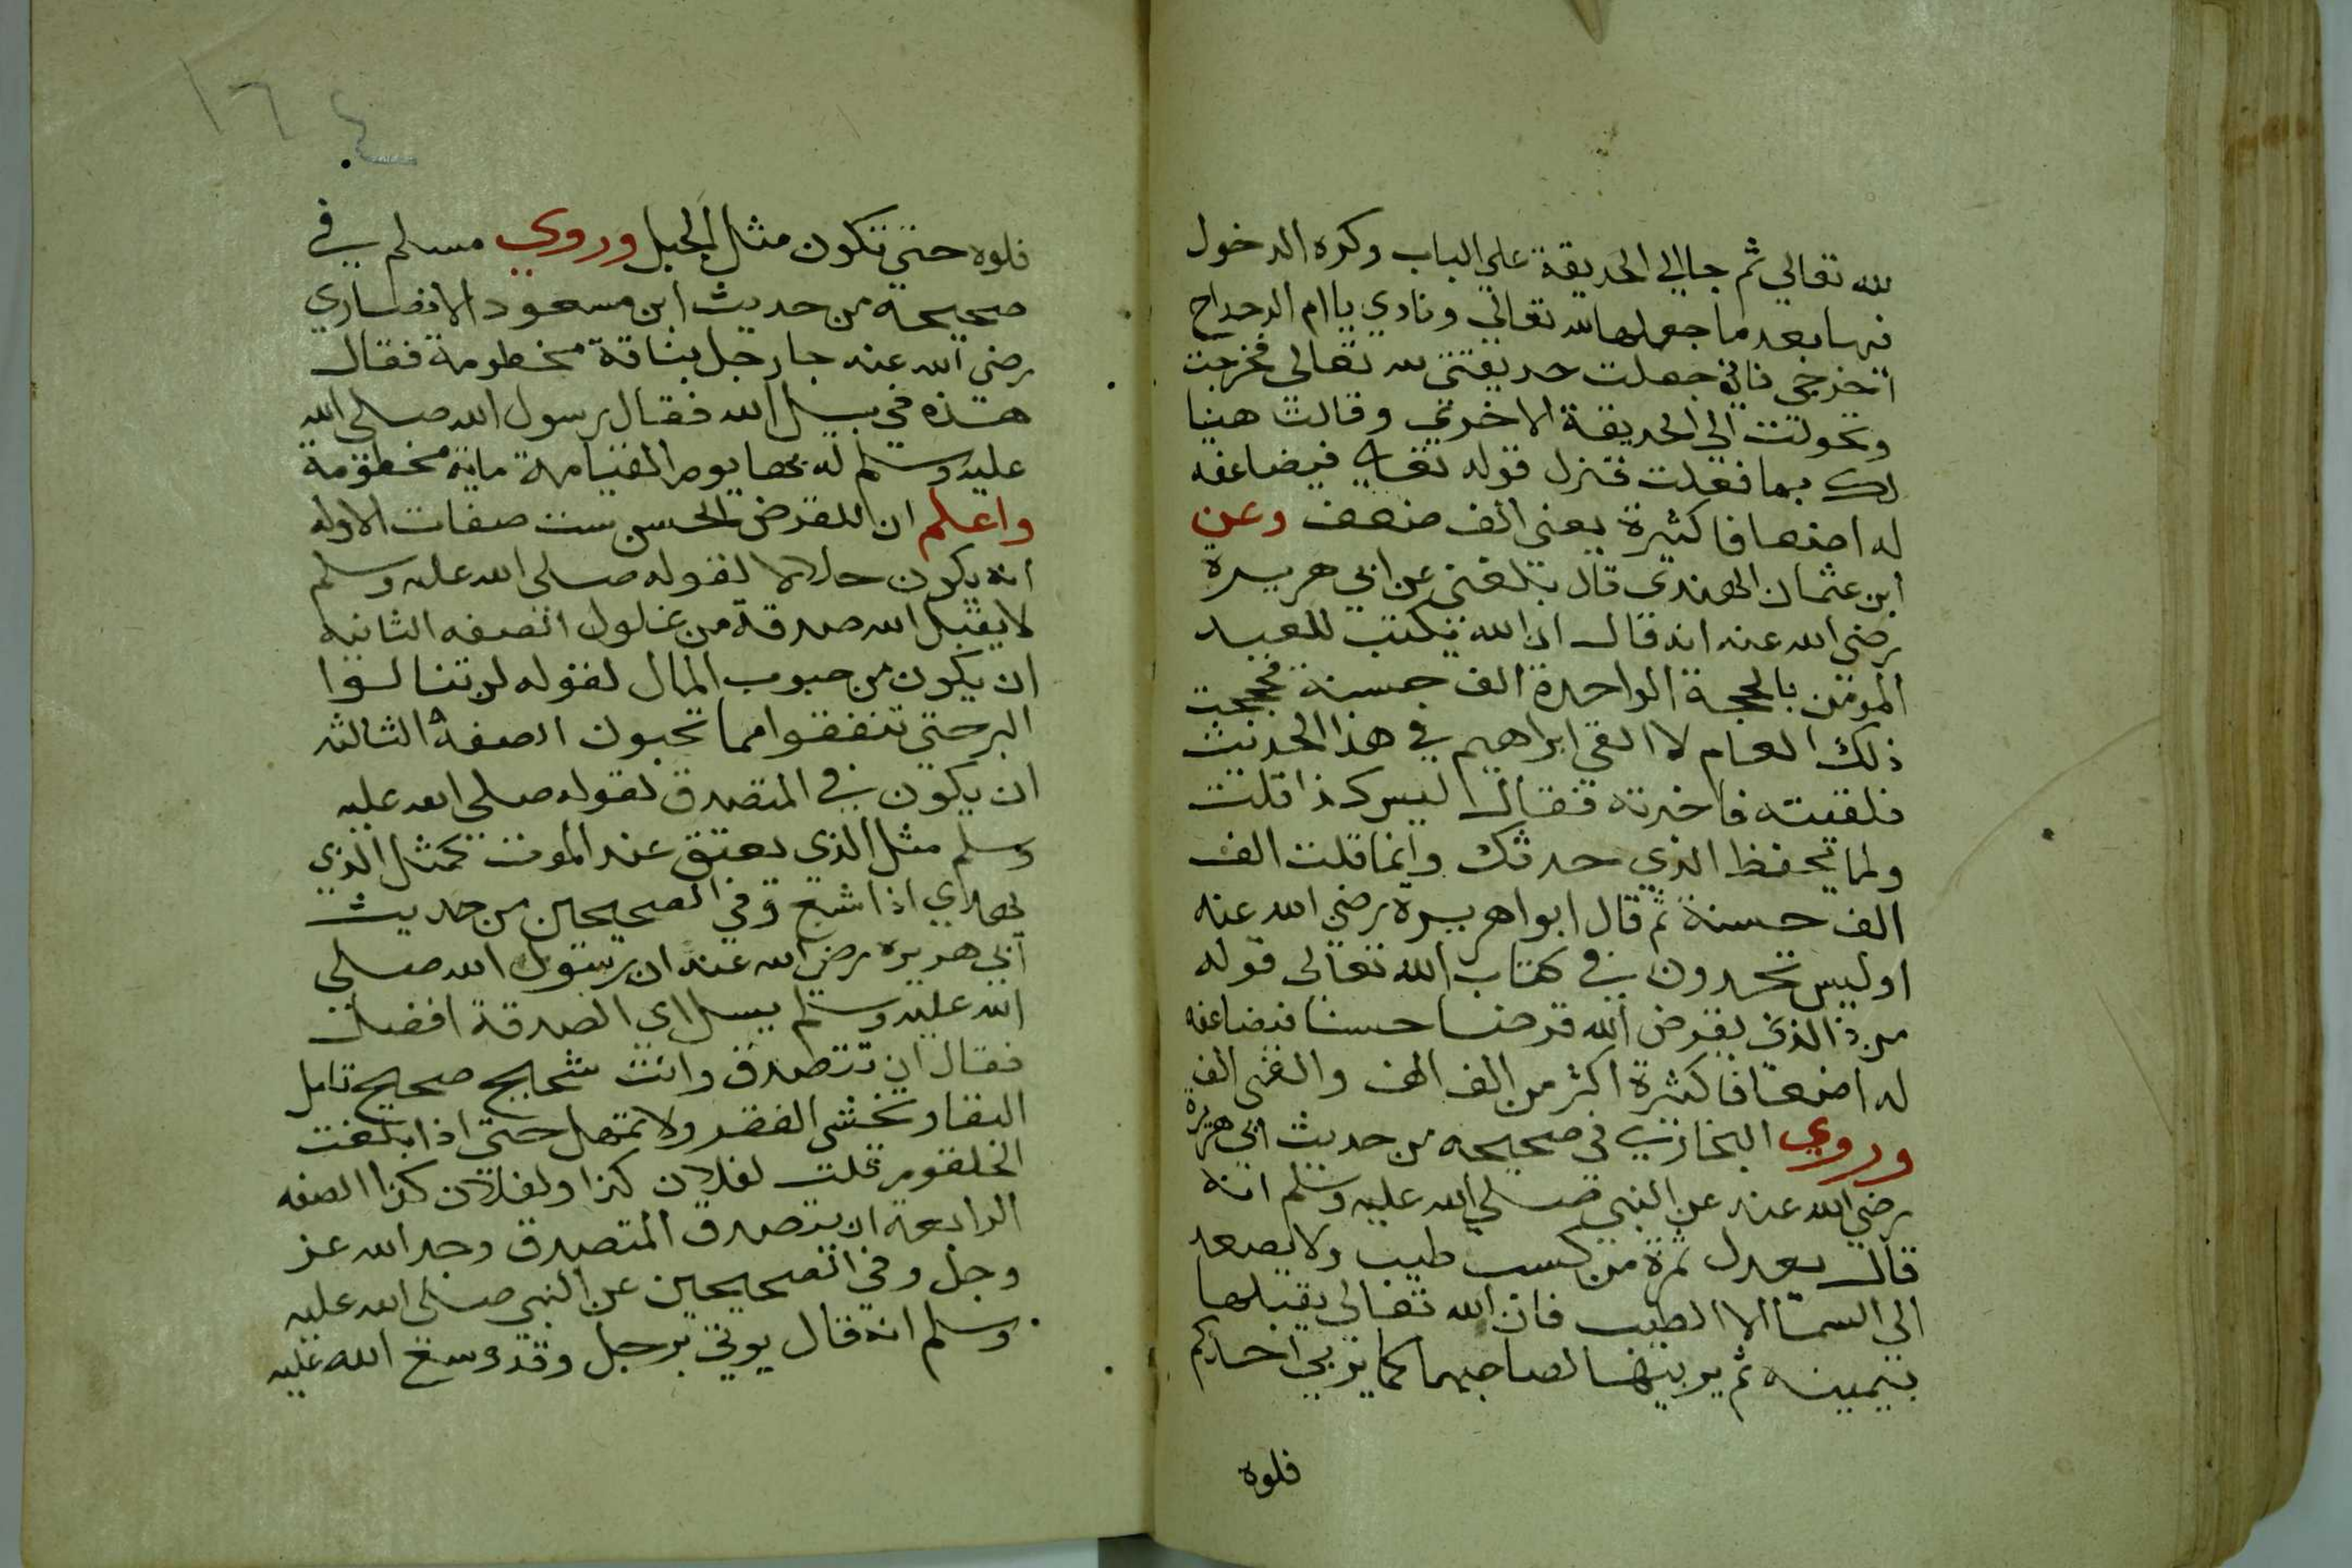 لله تعالي ثم جا الي الحديقة علي الباب وكره الدخول
فيها بعد ما جعلها لله تعالي ونادي يا ام الدحداح
اخرجي فاني جعلت حديقتي لله تعالى فخرجت
وتحولت الي الحديقة الاخري وقالت هنيا
لك بما فعلت فنزل قوله تعالي فيضاعفه
له اضعافا كثيرة يعني الف ضعف وعن
ابن عثمان الهندي قال بلغني عن ابي هريرة
رضي الله عنه انه قال ان الله يكتب للعبد
المومن بالحجة الواحدة الف حسنة فحججت
ذلك العام لا القي ابراهيم في هذا الحديث
فلقيته فاخبرته فقال ليس كذا قلت
ولما تحفظ الذي حدثك وانما قلت الف
الف حسنة ثم قال ابوا هريرة رضي الله عنه
اوليس تجدون في كتاب الله تعالى قوله
من ذا الذي يقرض الله قرضا حسنا فيضاعفه
له اضعافا كثيرة اكثر من الف الف والفي الف
وروي البخاري في صحيحه من حديث ابي هريرة
رضي الله عنه عن النبي صلي الله عليه وسلم انه
قال بعدل تمرة من كسب طيب ولا يصعد
الى السما الا الطيب فان الله تعالي يقبلها
بيمينه ثم يربيها لصاحبها كما يربي احدكم
فلوه
١٦٤
فلوه حتي تكون مثل الجبل وروي مسلم في
صحيحه من حديث ابن مسعود الانصاري
رضي الله عنه جا رجل بناقة مخطومة فقال
هذه في سبيل الله فقال رسول الله صلى الله
عليه وسلم له بها يوم القيامة ماية مخطومة
واعلم ان للقرض الحسن ست صفات الاوله
انه يكون حلالا لقوله صلى الله عليه وسلم
لا يقبل الله صدقة من غلول الصفه الثانيه
ان يكون من حبوب المال لقوله لن تنالوا
البر حتي تنفقوا مما تحبون الصفة الثالثه
ان يكون في المتصدق لقوله صلى الله عليه
وسلم مثل الذي يعتق عند الموت كمثل الذي
يهدي اذا شبع وفي الصحيحين من حديث
ابي هريره رضي الله عنه ان رسول الله صلى
الله عليه وسلم يسل اي الصدقة افضل
فقال ان تتصدق وانت شحيح صحيح تامل
البقا وتخشى الفقر ولا تمهل حتى اذا بلغت
الخلقوم قلت لفلان كذا ولفلان كذا الصفه
الرابعة ان يتصدق المتصدق وجد الله عز
وجل وفي الصحيحين عن النبي صلى الله عليه
وسلم انه قال يوتي برجل وقد وسع الله عليه